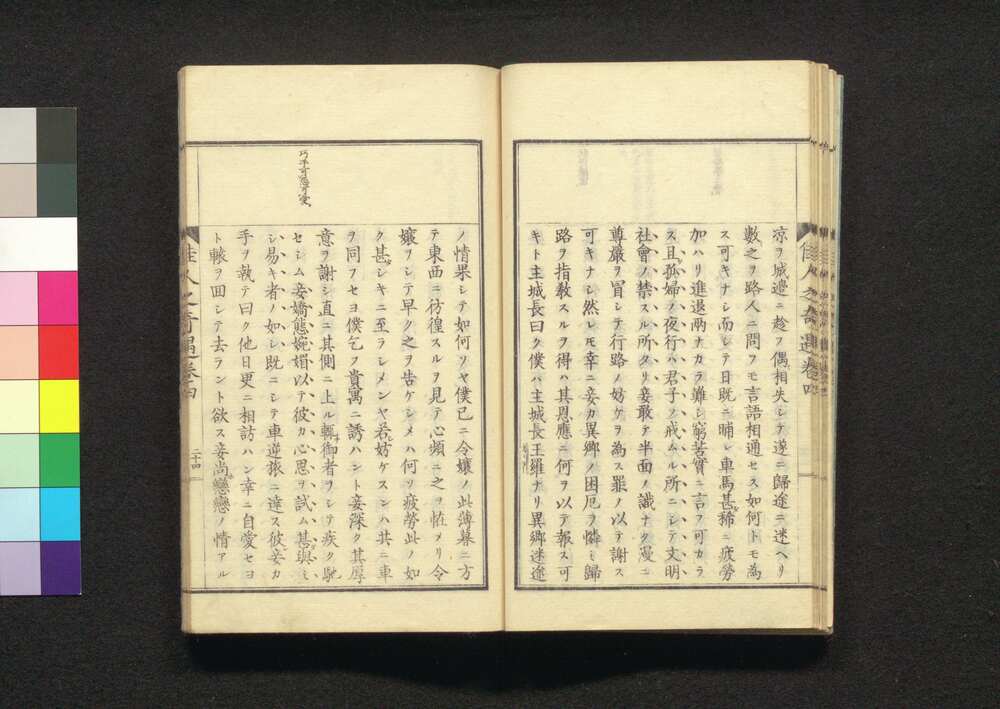 佳人之奇遇卷四
凉ヲ城邊ニ趁フ偶相失シテ遂ニ歸途ニ迷ヘリ
數之ヲ路人ニ問フモ言語相通セス如何トモ為
ス可キナシ而シテ日既ニ晡レ車馬甚稀ニ疲勞
加ハリ進退兩ナカラ難シ窮苦實ニ言フ可カラ
ス且孤婦ノ夜行ハ君子ノ戒ムル所ニシテ文明
社會ノ禁スル所タリ妾敢テ半面ノ識ナク漫ニ
尊嚴ヲ冒シテ行路ノ妨ケヲ為ス罪ノ以テ謝ス
可キナシ然レモ幸ニ妾カ異鄉ノ困厄ヲ憐ミ歸
路ヲ指教スルヲ得ハ其恩應ニ何ヲ以テ報ス可
キト主城長曰ク僕ハ主城長王羅ナリ異鄉迷途
ノ情果シテ如何ソヤ僕已ニ令孃ノ此薄暮ニ方
テ東西ニ彷徨スルヲ見テ心頻ニ之ヲ恠メリ令
孃ヲシテ早ク之ヲ告ケシメハ何ソ疲勞此ノ如
ク甚シキニ至ラシメンヤ若妨ケスンハ其ニ車
ヲ同フセヨ僕乞フ貴寓ニ誘ハント妾深ク其厚
意ヲ謝シ直ニ其側ニ上ル輙御者ヲシテ疾ク馳
セシム妾嬌態婉媚以テ彼カ心思ヲ試ム甚與ミ
シ易キ者ノ如シ既ニシテ車逆旅ニ達ス彼妾カ
手ヲ執テ曰ク他日更ニ相訪ハン幸ニ自愛セヨ
ト轅ヲ回シテ去ラント欲ス妾尚戀戀ノ情アル
佳人之奇遇卷四
二十四